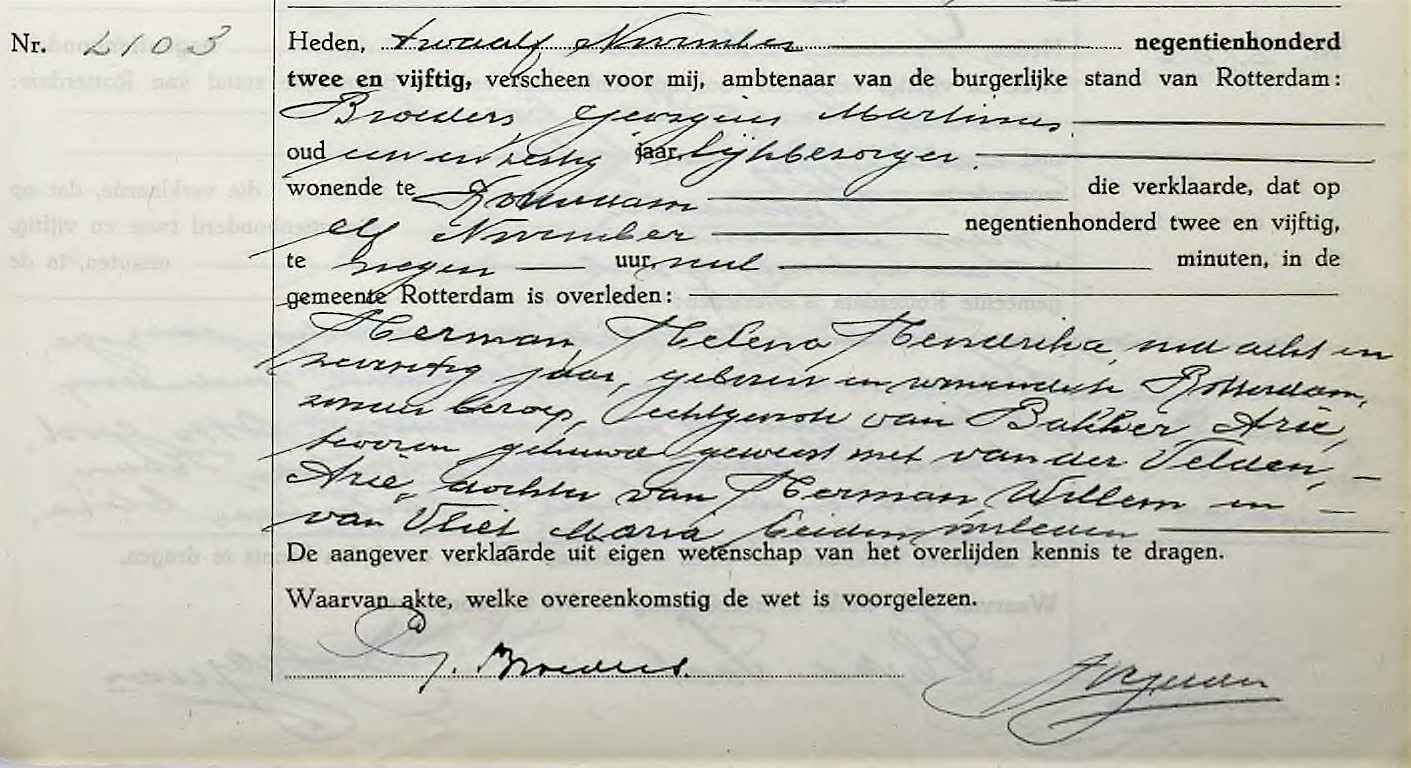 Nr. 2103
Heden, twaalf November negentienhonderd
twee en vijftig, verscheen voor mij, ambtenaar van de burgerlijke stand van Rotterdam:
Broeders, Georgius Martinus
oud een en zestig jaar, lijkbezorger
wonende te Rotterdam die verklaarde, dat op
elf November negentienhonderd twee en vijftig,
te negen uur, nul minuten, in de
gemeente Rotterdam is overleden:
Herman, Helena Hendrika, oud acht en
zeventig jaar, geboren en wonende te Rotterdam,
zonder beroep, echtgenote van Bakker, Arie,
tevoren gehuwd geweest met van der Velden,
Arie, dochter van Herman, Willem en
van Vliet Maria, beiden overleden
De aangever verklaarde uit eigen wetenschap van het overlijden kennis te dragen.
Waarvan akte, welke overeenkomstig de wet is voorgelezen.
G. Broeders.